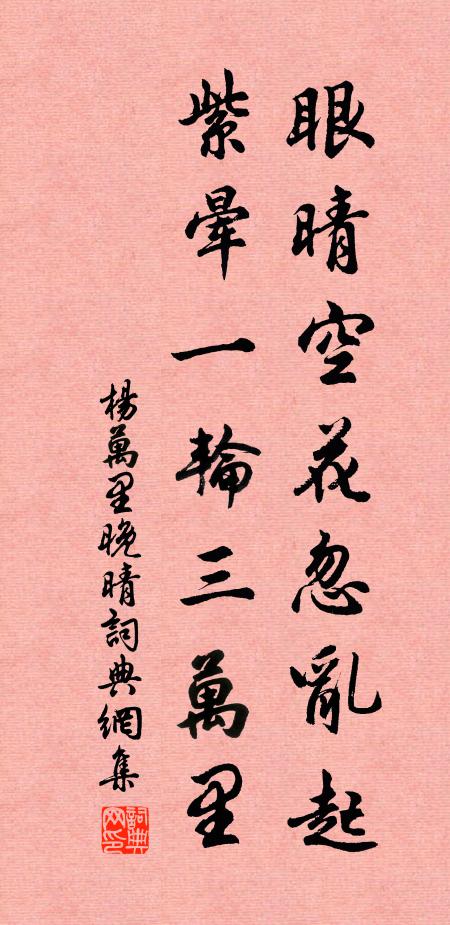 眼晴空花忽亂起
紫暈一輪三萬里
楊萬里晚晴詞典網集
詞典网印